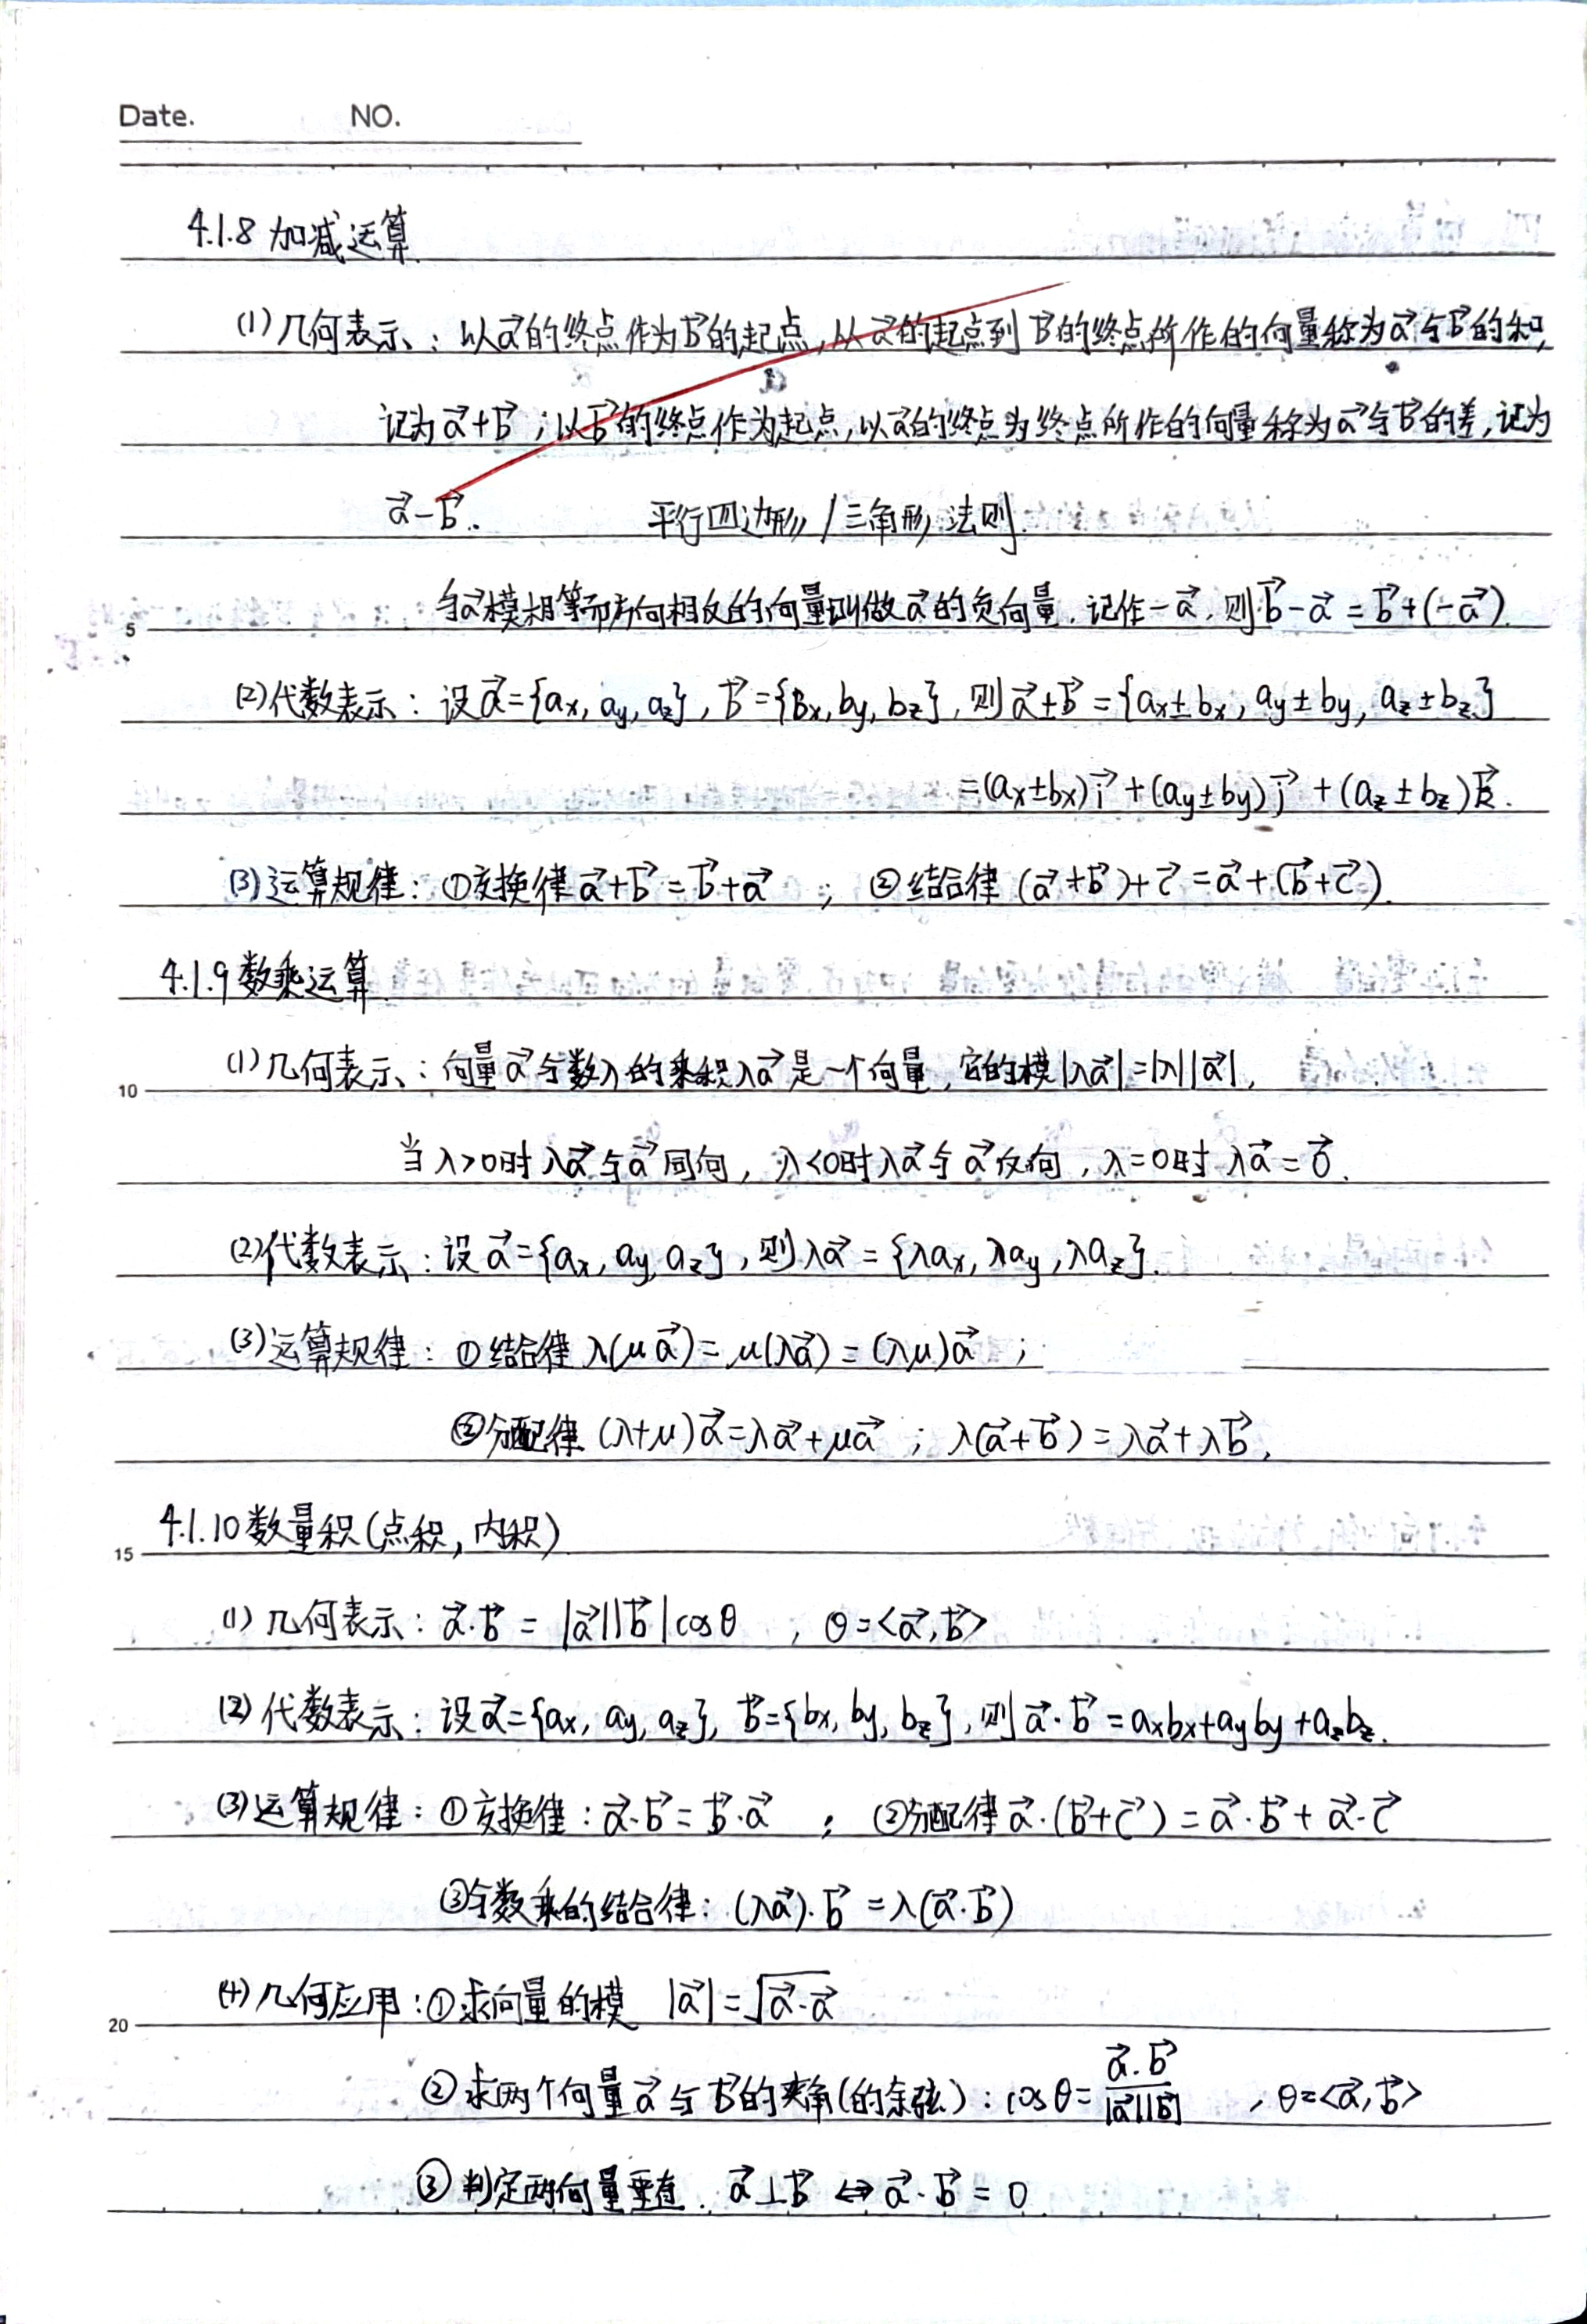 Date. NO.
4.1.8 加减运算.
(1) 几何表示：以a⃗的终点作为b⃗的起点，从a⃗的起点到b⃗的终点所作的向量称为a⃗与b⃗的和，
记为a⃗+b⃗；以b⃗的终点作为起点，以a⃗的终点为终点所作的向量称为a⃗与b⃗的差，记为
a⃗-b⃗. 平行四边形/三角形法则.
5 与a⃗模相等而方向相反的向量叫做a⃗的负向量，记作-a⃗，则b⃗-a⃗=b⃗+(-a⃗).
(2) 代数表示：设a⃗={ax, ay, az}, b⃗={bx, by, bz}, 则a⃗±b⃗={ax±bx, ay±by, az±bz}
=(ax±bx)i⃗+(ay±by)j⃗+(az±bz)k⃗.
(3) 运算规律：①交换律 a⃗+b⃗=b⃗+a⃗ ; ②结合律 (a⃗+b⃗)+c⃗=a⃗+(b⃗+c⃗).
4.1.9 数乘运算
10 (1) 几何表示：向量a⃗与数λ的乘积λa⃗是一个向量，它的模|λa⃗|=|λ||a⃗|,
当λ>0时λa⃗与a⃗同向，λ<0时λa⃗与a⃗反向，λ=0时λa⃗=0⃗.
(2) 代数表示：设a⃗={ax, ay, az}, 则λa⃗={λax, λay, λaz}.
(3) 运算规律：①结合律 λ(μa⃗)=μ(λa⃗)=(λμ)a⃗ ;
②分配律 (λ+μ)a⃗=λa⃗+μa⃗ ; λ(a⃗+b⃗)=λa⃗+λb⃗.
15 4.1.10 数量积(点积,内积)
(1) 几何表示：a⃗·b⃗=|a⃗||b⃗|cosθ , θ=<a⃗,b⃗>
(2) 代数表示：设a⃗={ax, ay, az}, b⃗={bx, by, bz}, 则a⃗·b⃗=axbx+ayby+azbz.
(3) 运算规律：①交换律：a⃗·b⃗=b⃗·a⃗ ; ②分配律 a⃗·(b⃗+c⃗)=a⃗·b⃗+a⃗·c⃗
③与数乘的结合律：(λa⃗)·b⃗=λ(a⃗·b⃗)
20 (4) 几何应用：①求向量的模 |a⃗|=√(a⃗·a⃗)
②求两个向量a⃗与b⃗的夹角(的余弦)：cosθ=a⃗·b⃗/|a⃗||b⃗| , θ=<a⃗,b⃗>
③判定两向量垂直. a⃗⊥b⃗⇔a⃗·b⃗=0